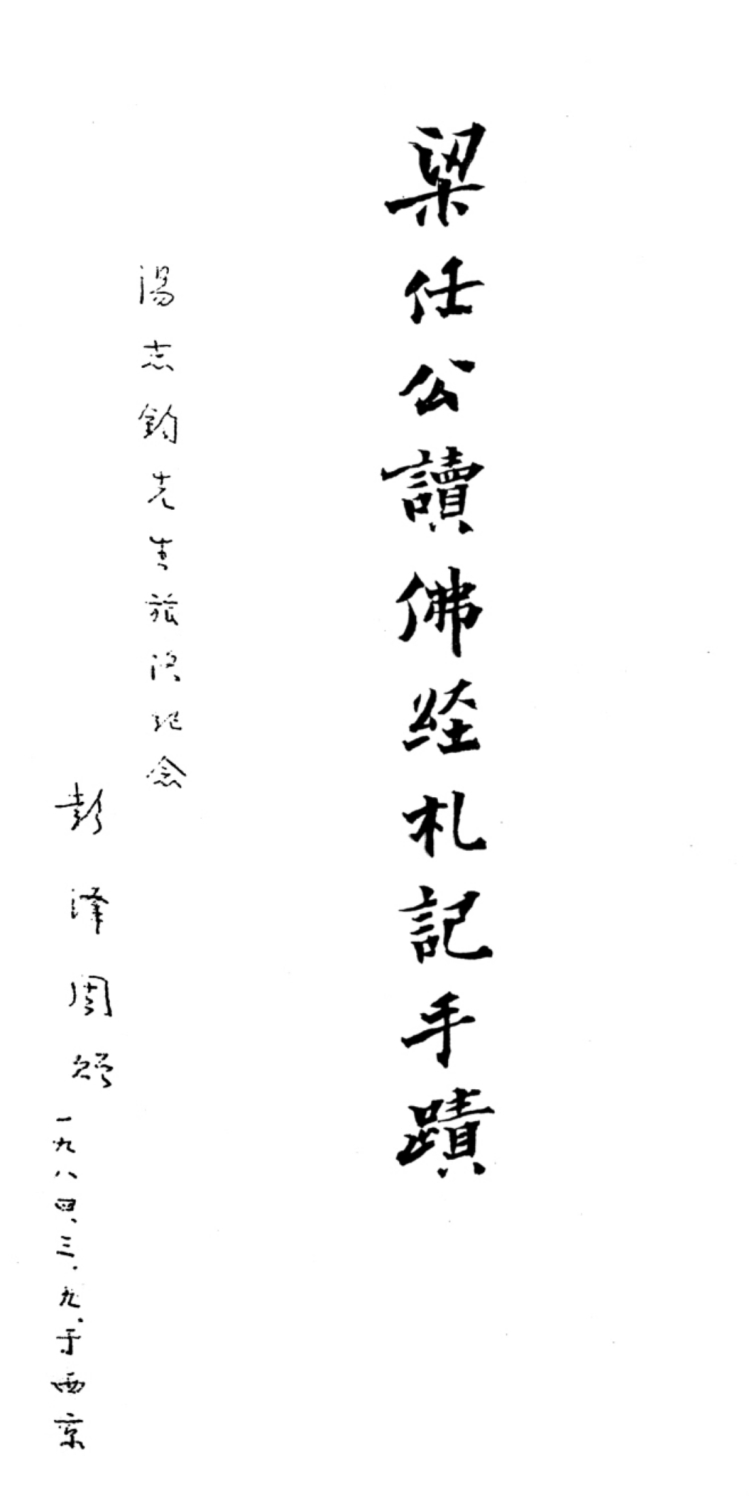 梁任公讀佛経札記手蹟
湯志鈞先生旅洛紀念
彭澤周贈
一九八四、三、九、于西京